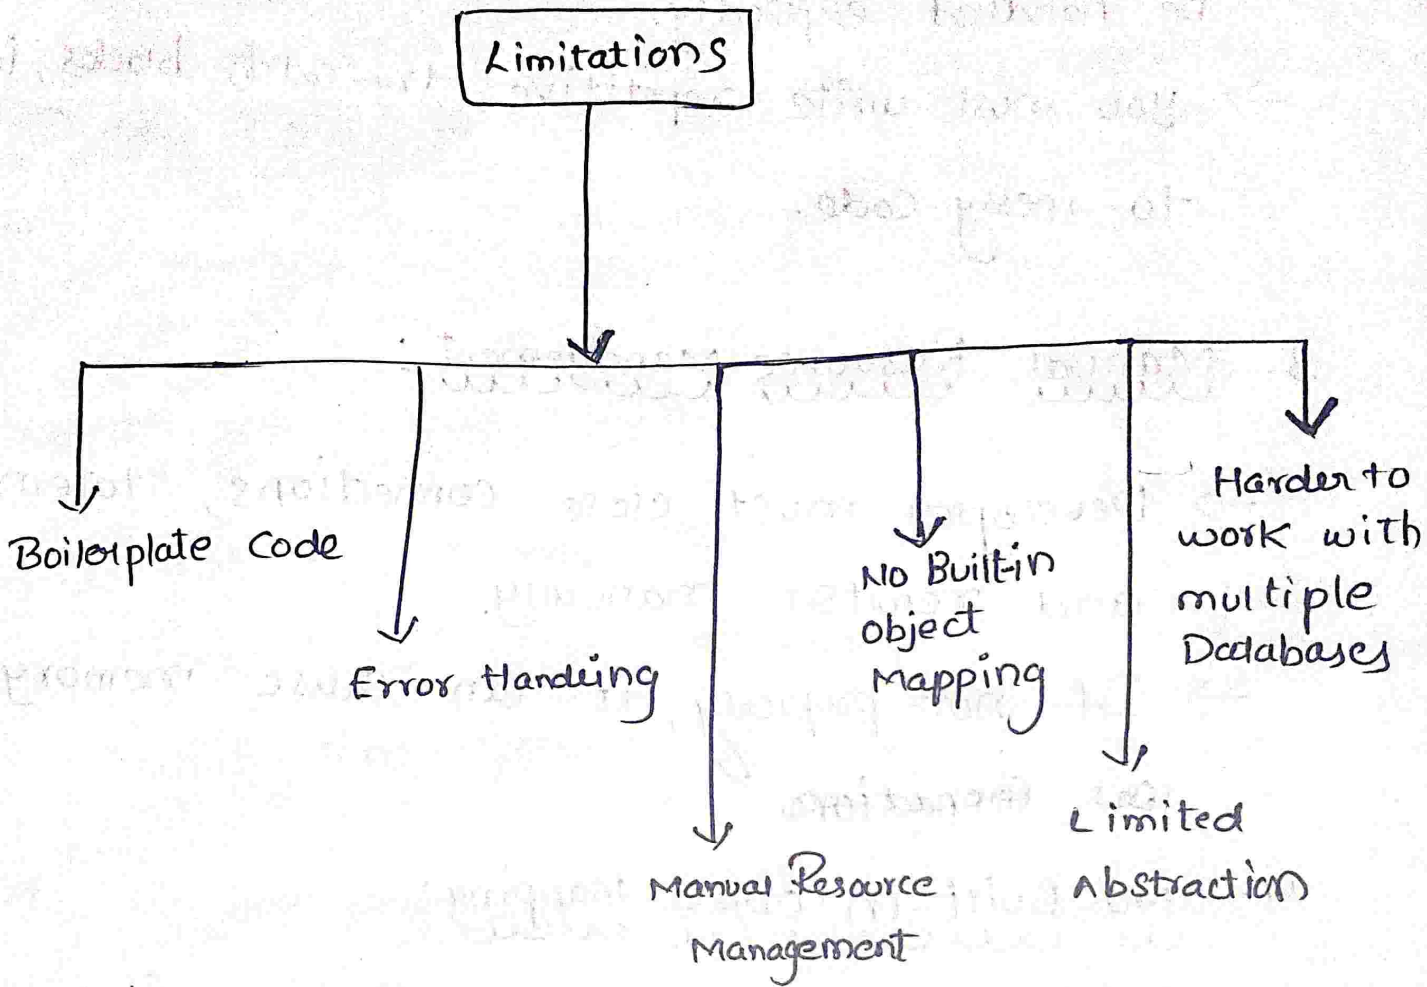 Limitations
Boilerplate Code
Error Handling
Manual Resource
Management
No Built-in
Object
Mapping
Limited
Abstraction
Harder to
work with
multiple
Databases